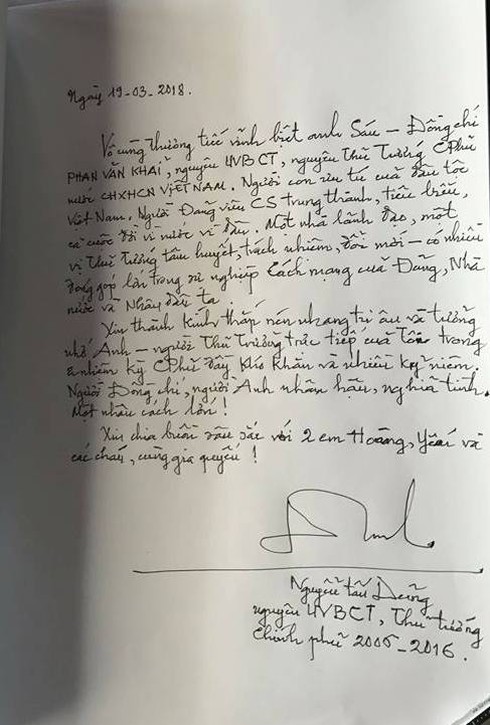 Ngày 19-03-2018.
Vô cùng thương tiếc vĩnh biệt anh Sáu - Đồng chí
PHAN VĂN KHẢI, nguyên UVBCT, nguyên Thủ Tướng CPhủ
nước CHXHCN VIỆT NAM. Người con ưu tú của dân tộc
Việt Nam. Người Đảng viên CS trung thành, tiêu biểu,
cả cuộc đời vì nước vì dân. Một nhà lãnh đạo, một
vị Thủ Tướng tâm huyết, trách nhiệm, đổi mới - có nhiều
đóng góp lớn trong sự nghiệp Cách mạng của Đảng, Nhà
nước và Nhân dân ta.
Xin thành kính thắp nén nhang tri ân và tưởng
nhớ Anh - người Thủ Trưởng trực tiếp của Tôi trong
2 nhiệm kỳ CPhủ đầy khó khăn và nhiều kỷ niệm.
Người Đồng chí, người Anh nhân hậu, nghĩa tình.
Một nhân cách lớn!
Xin chia buồn sâu sắc với 2 em Hoàng, Yến và
các cháu, cùng gia quyến!
Nguyễn Tấn Dũng
nguyên UVBCT, Thủ tướng
Chính phủ 2006-2016.